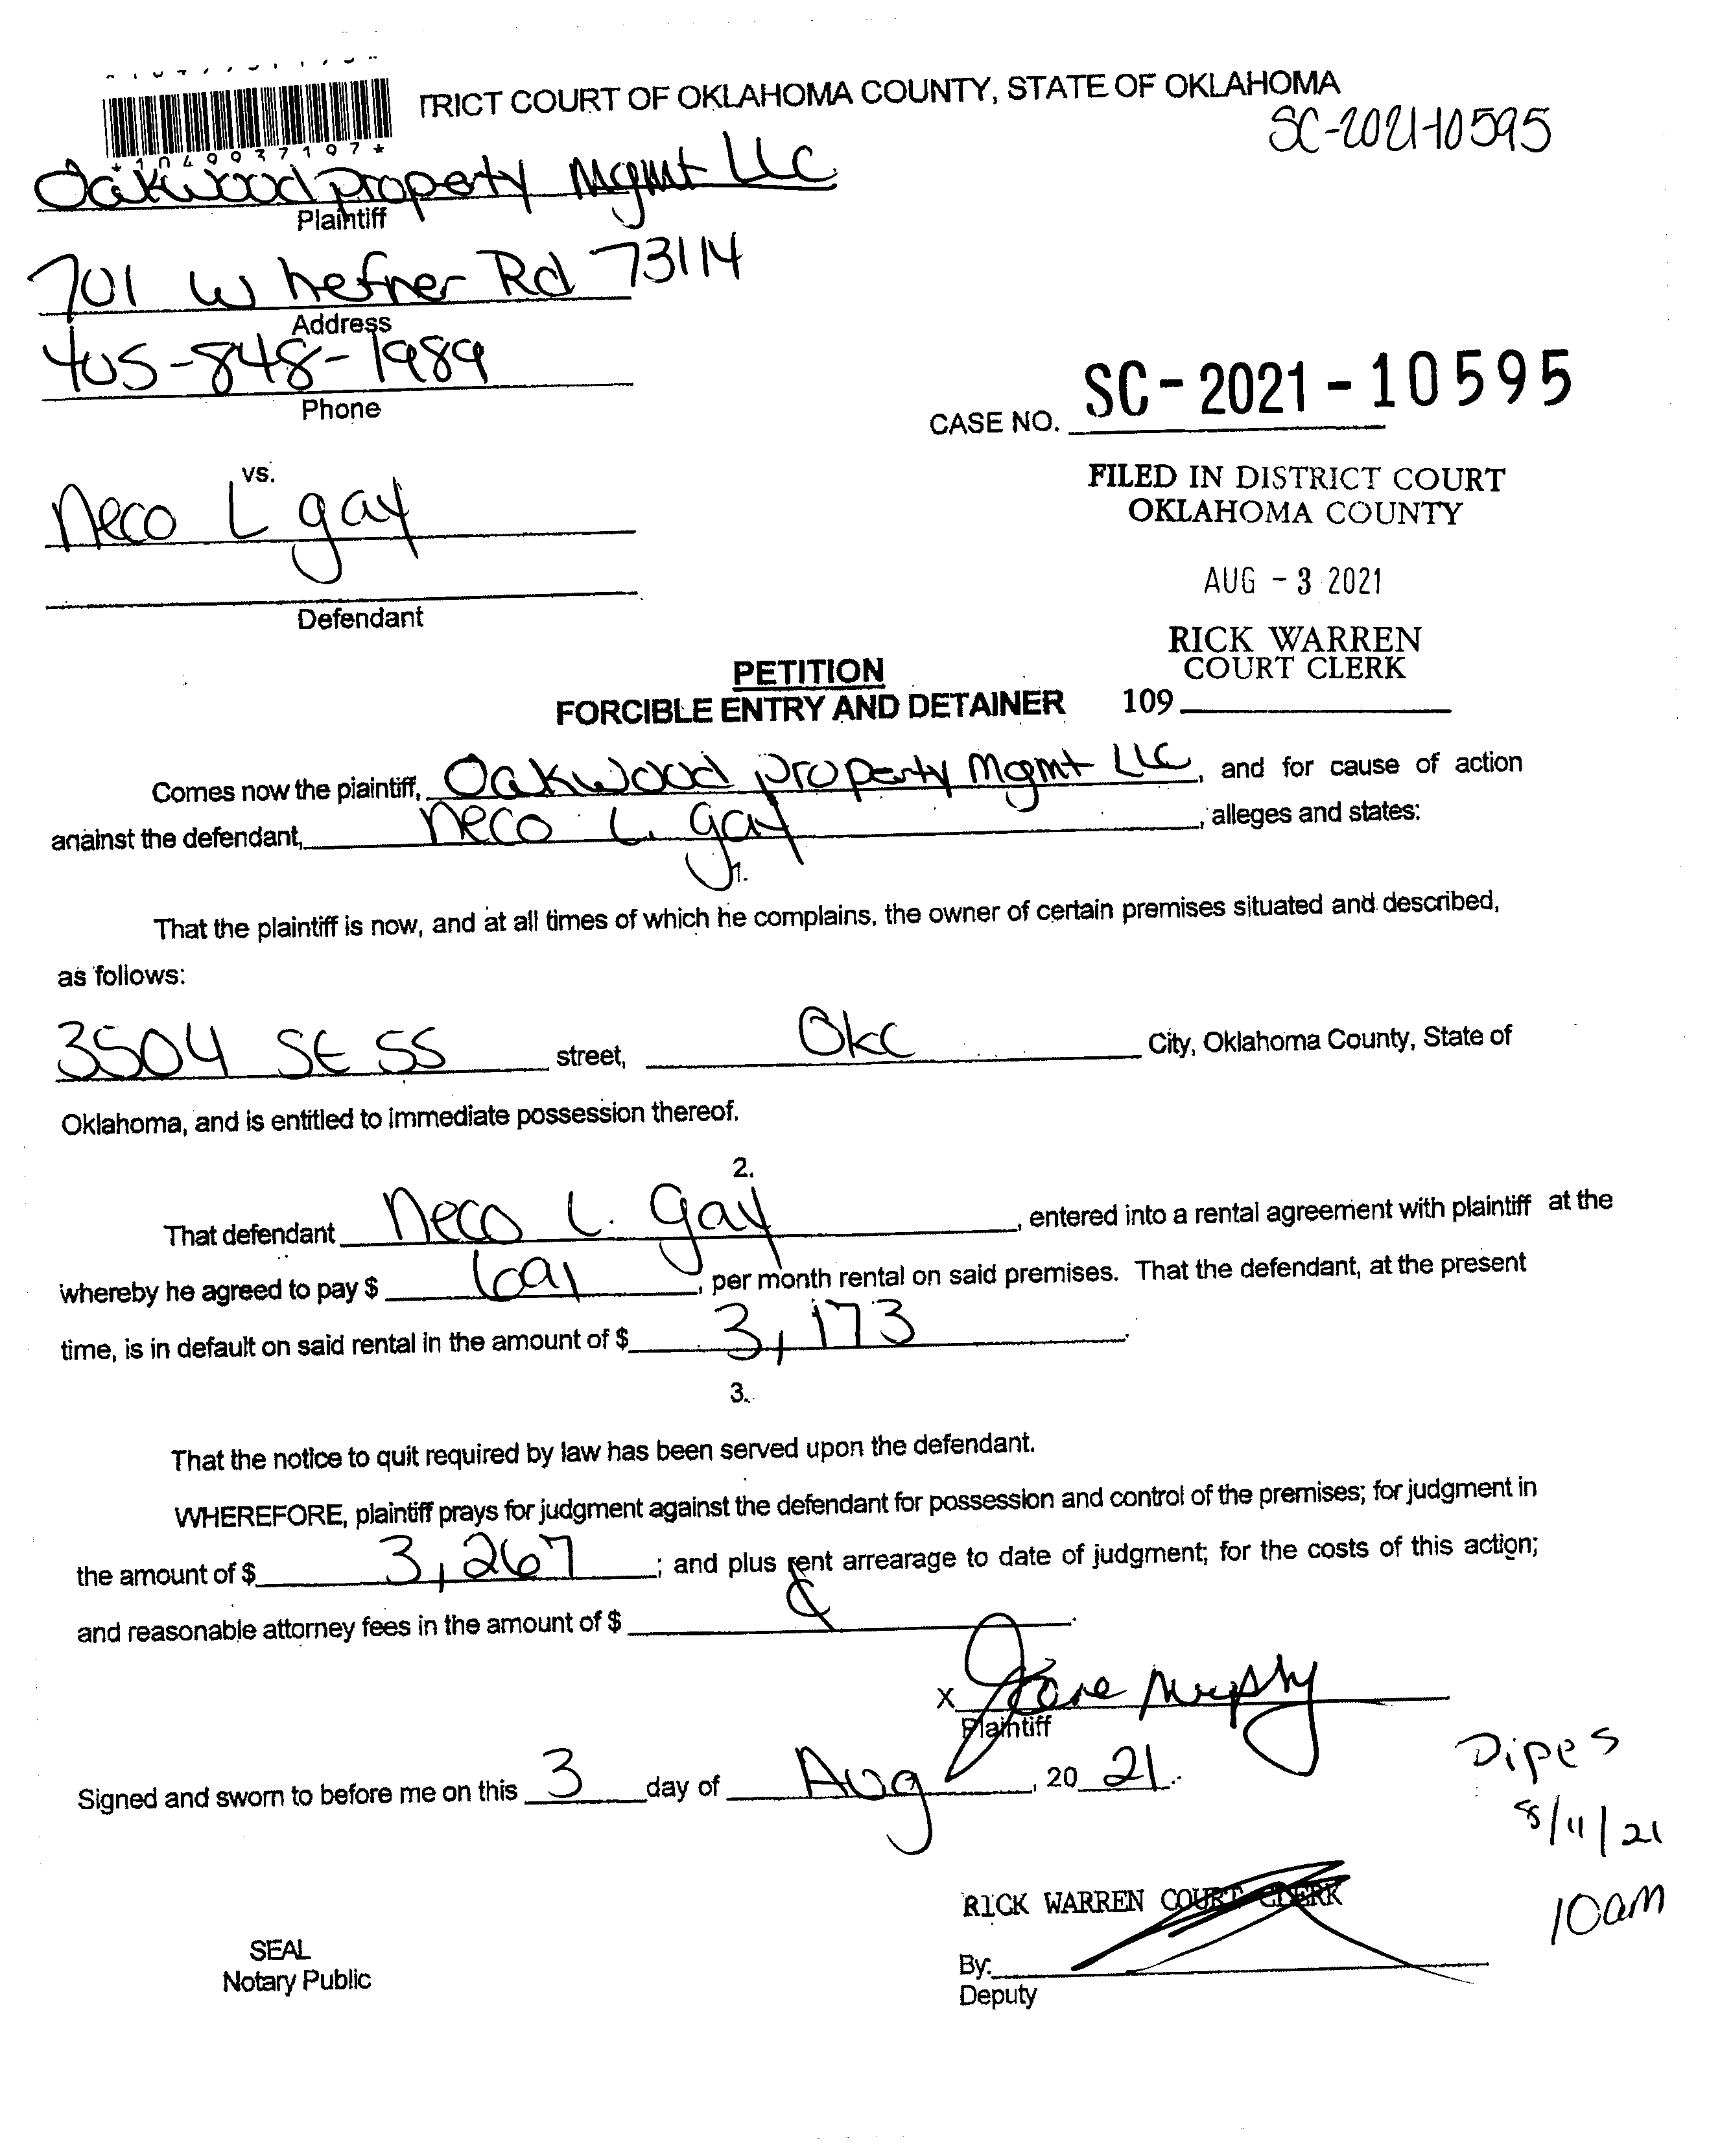 TRICT COURT OF OKLAHOMA COUNTY, STATE OF OKLAHOMA
SC-2021-10595
*1049937197*
Oakwood property Mgmt LLC
Plaintiff
701 W hefner Rd 73114
Address
405-848-1989
Phone
CASE NO. SC-2021-10595
vs.
FILED IN DISTRICT COURT
OKLAHOMA COUNTY
Neco L gay
AUG -3 2021
Defendant
RICK WARREN
COURT CLERK
PETITION
FORCIBLE ENTRY AND DETAINER
109
Comes now the plaintiff, Oakwood property Mgmt LLC, and for cause of action
against the defendant, Neco L. gay, alleges and states:
1.
That the plaintiff is now, and at all times of which he complains, the owner of certain premises situated and described,
as follows:
3504 SE 55 street, Okc City, Oklahoma County, State of
Oklahoma, and is entitled to immediate possession thereof.
2.
That defendant Neco L. Gay, entered into a rental agreement with plaintiff at the
whereby he agreed to pay $ 691, per month rental on said premises. That the defendant, at the present
time, is in default on said rental in the amount of $ 3,173.
3.
That the notice to quit required by law has been served upon the defendant.
WHEREFORE, plaintiff prays for judgment against the defendant for possession and control of the premises; for judgment in
the amount of $ 3,267; and plus rent arrearage to date of judgment; for the costs of this action;
and reasonable attorney fees in the amount of $
X Murphy
Plaintiff
Dipes
Signed and sworn to before me on this 3 day of Aug, 20 21.
8/11/21
RICK WARREN COURT CLERK
10am
SEAL
By:
Notary Public
Deputy